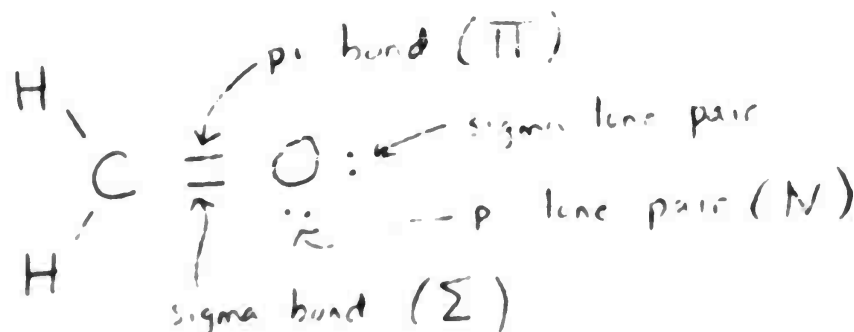 pi bond (Π)
H
sigma lone pair
C = O :
..
p lone pair (N)
H
sigma bond (Σ)